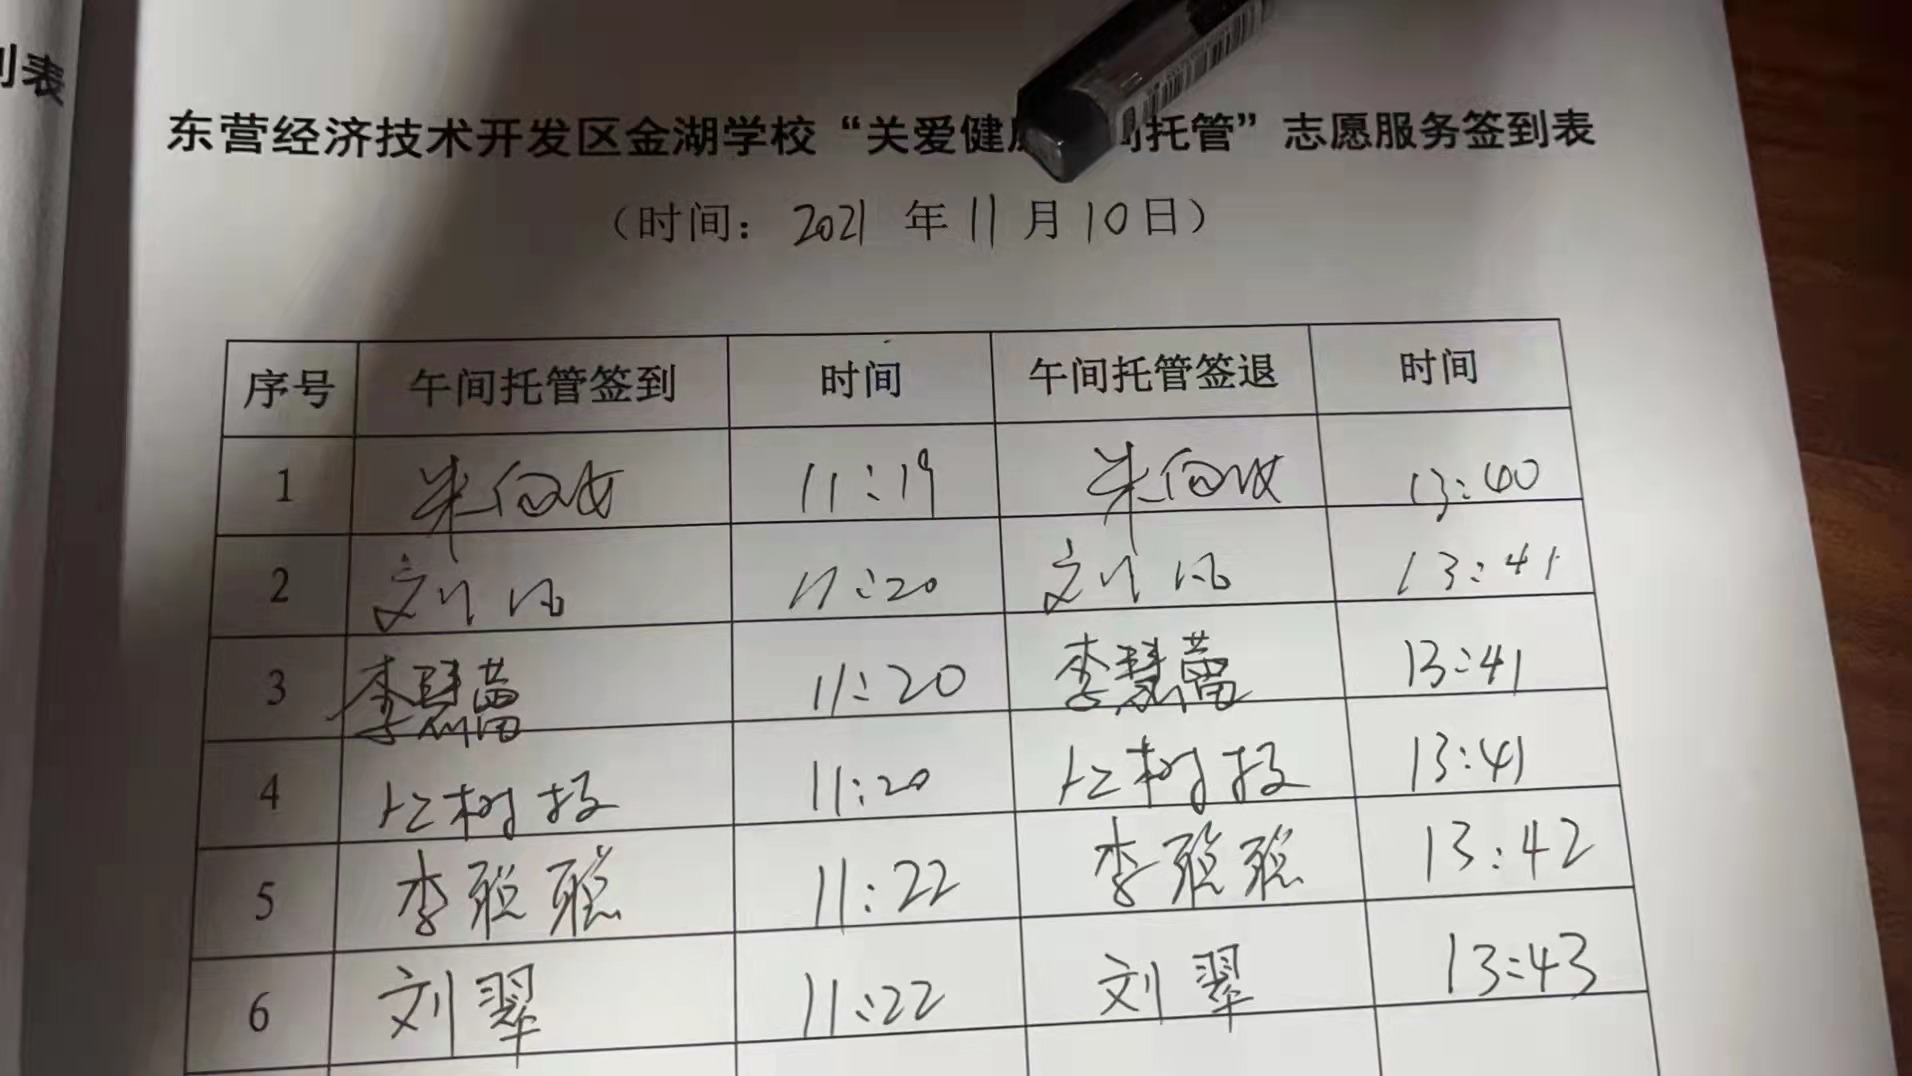 到表
东营经济技术开发区金湖学校“关爱健 间托管”志愿服务签到表
（时间：2021 年 11 月 10 日）
序号 午间托管签到 时间 午间托管签退 时间
1 11:19 13:40
2 11:20 13:41
3 李慧蕾 11:20 李慧蕾 13:41
4 11:20 13:41
5 李聪聪 11:22 李聪聪 13:42
6 刘翠 11:22 刘翠 13:43